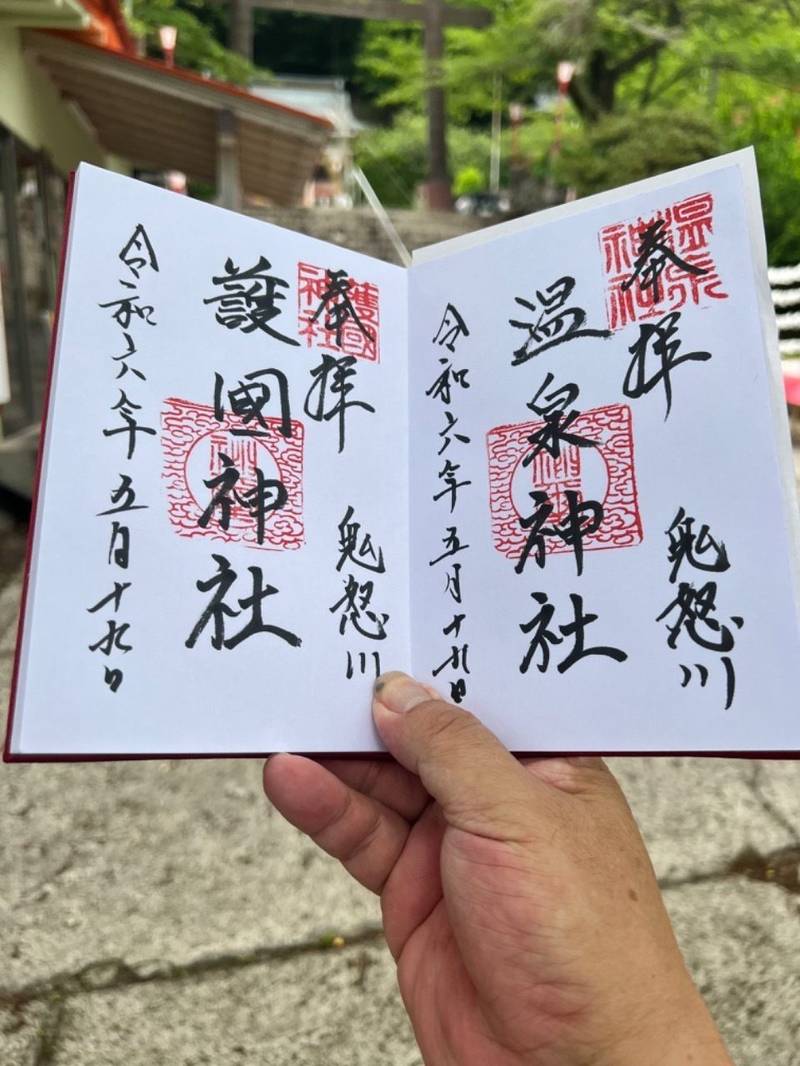 奉拝
鬼怒川
温泉神社
令和六年五月十九日
温泉
神社
奉拝
鬼怒川
護國神社
令和六年五月十九日
護國
神社